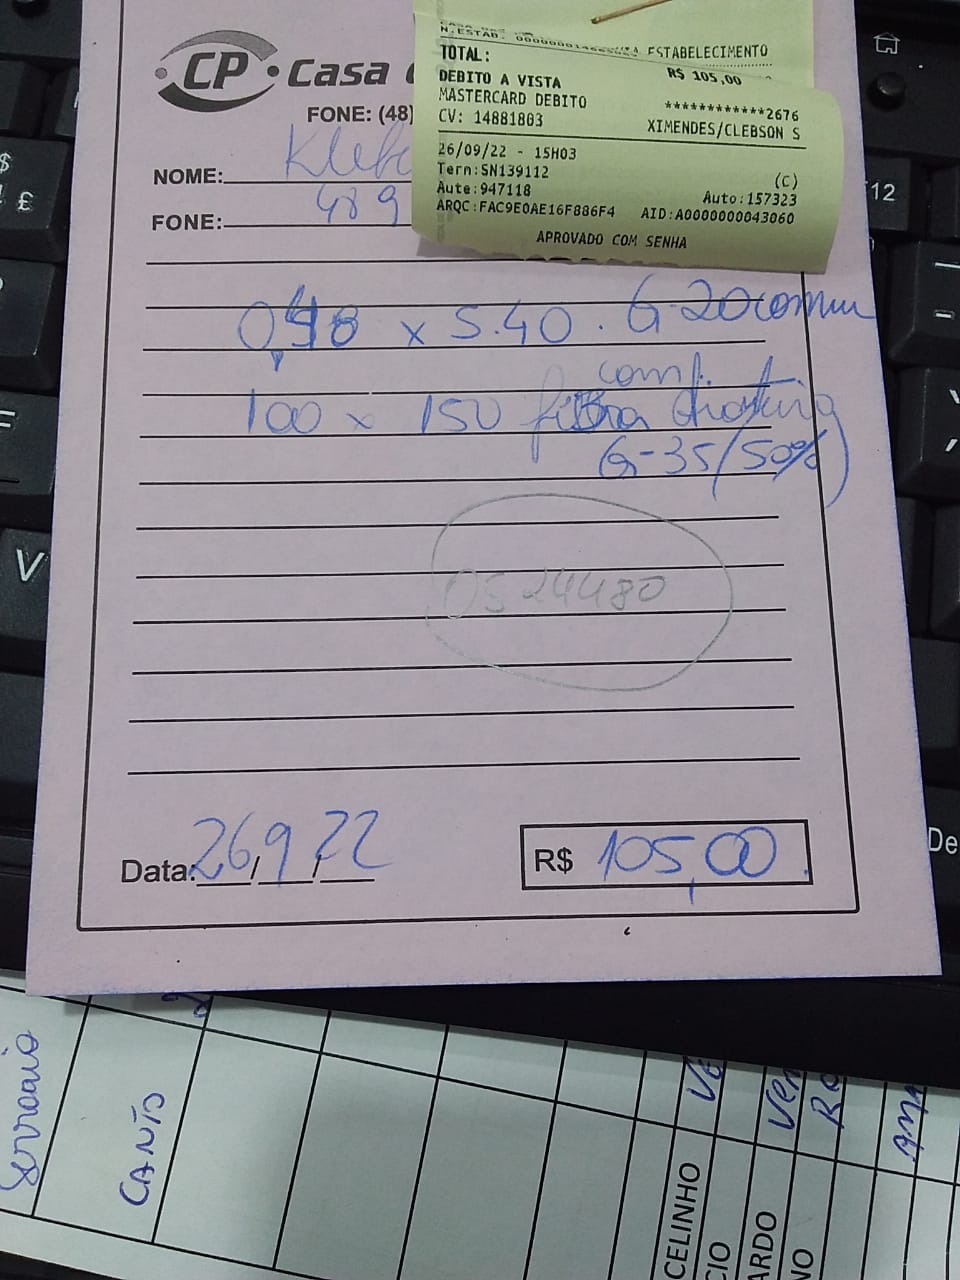 CP Casa
FONE: (48)
NOME: Kleb
FONE: 489
N.ESTAB. ESTABELECIMENTO
TOTAL: R$ 105,00
DEBITO A VISTA
MASTERCARD DEBITO ************2676
CV: 14881803 XIMENDES/CLEBSON S
26/09/22 - 15H03
Tern:SN139112 (C)
Aute:947118 Auto:157323
ARQC:FAC9E0AE16F886F4 AID:A0000000043060
APROVADO COM SENHA
0,98 x 5.40. G-20 comum
comf.
100 x 150
G-35/50%)
OS 24480
Data: 26/9/22 R$ 105,00
Serraaio
CANTO
CELINHO
CIO
ARDO
NO
Ve
Ven
Ro
12
V
De